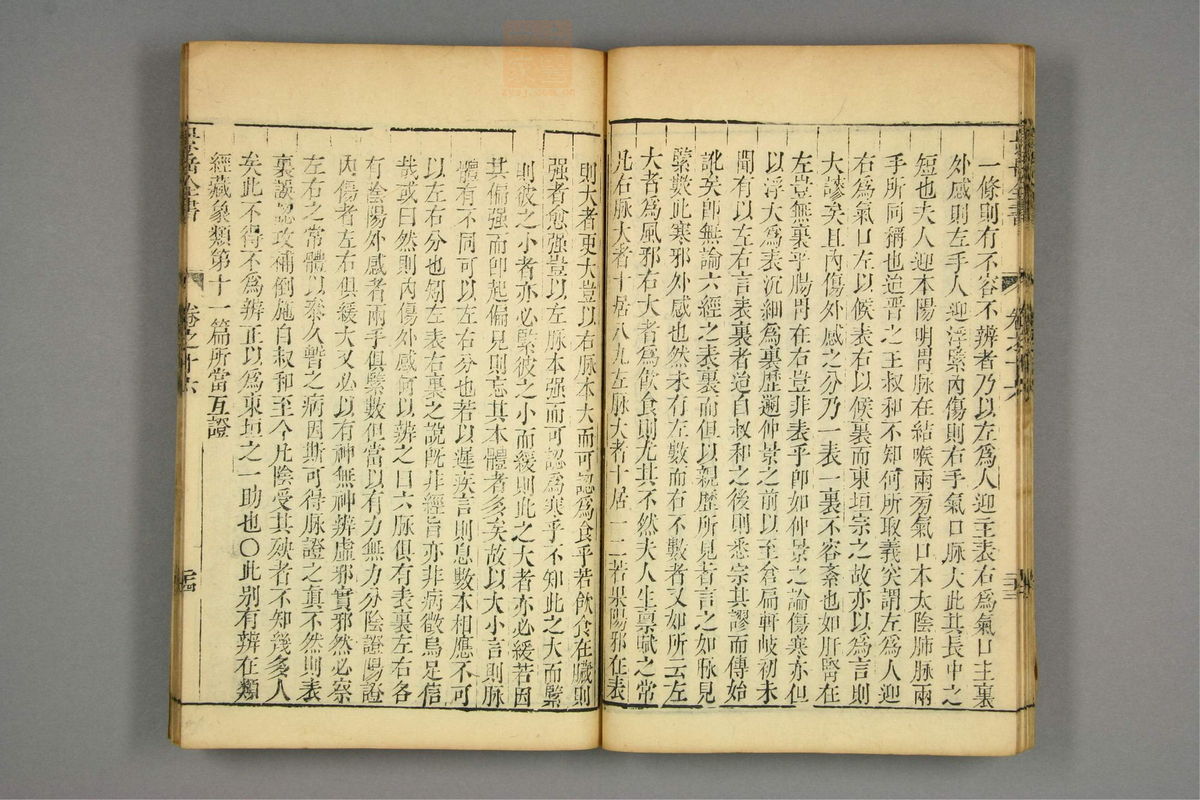 一條則有不容不辨者乃以左爲人迎主表右爲氣口主裏
外感則左手人迎浮緊內傷則右手氣口脉大此其長中之
短也夫人迎本陽明胃脉在結喉兩旁氣口本太陰肺脉兩
手所同稱也迨晉之王叔和不知何所取義突謂左爲人迎
右爲氣口左以候表右以候裏而東垣宗之故亦以爲言則
大謬矣且內傷外感之分乃一表一裏不容紊也如肝腎在
左豈無裏乎腸胃在右豈非表乎卽如仲景之論傷寒亦但
以浮大爲表沉細爲裏歷遡仲景之前以至倉扁軒岐初未
聞有以左右言表裏者迨自叔和之後則悉宗其謬而傳始
訛矣卽無論六經之表裏而但以親歷所見者言之如脉見
緊數此寒邪外感也然未有左數而右不數者又如所云左
大者爲風邪右大者爲飲食則尤其不然夫人生禀賦之常
凡右脉大者十居八九左脉大者十居一二若果陽邪在表
則大者更大豈以右脉本大而可認爲食乎若飲食在臟則
强者愈强豈以左脉本强而可認爲寒乎不知此之大而緊
則彼之小者亦必緊彼之小而緩則此之大者亦必緩若因
其偏强而卽起偏見則忘其本體者多矣故以大小言則脉
體有不同可以左右分也若以遲疾言則息數本相應不可
以左右分也矧左表右裏之說旣非經旨亦非病徵烏足信
哉或曰然則內傷外感何以辨之曰六脉俱有表裏左右各
有陰陽外感者兩手俱緊數但當以有力無力分陰證陽證
內傷者左右俱緩大又必以有神無神辨虛邪實邪然必察
左右之常體以參久暫之病因斯可得脉證之眞不然則表
裏誤認攻補倒施自叔和至今凡陰受其殃者不知幾多人
矣此不得不爲辨正以爲東垣之一助也〇此別有辨在類
經藏象類第十一篇所當互證